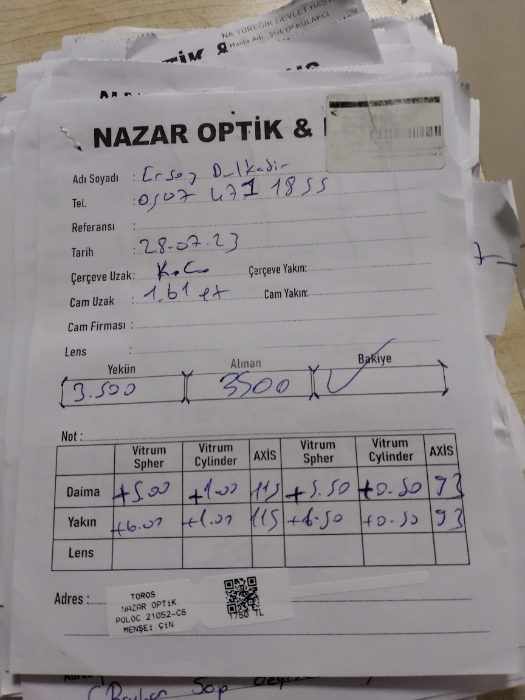 NA YÜREĞİR DEVLET HAST
TİK &
NAZAR OPTİK &
Adı Soyadı : Ersoy Dulkadir
Tel. : 0507 471 18 55
Referansı :
Tarih : 28.07.23
Çerçeve Uzak: K.C. Çerçeve Yakın:
Cam Uzak : 1.61 Cam Yakın:
Cam Firması :
Lens :
Yekün Alınan Bakiye
3.500 3500
Not :
Vitrum Spher Vitrum Cylinder AXİS Vitrum Spher Vitrum Cylinder AXİS
Daima +5.00 +1.00 115 +5.50 +0.50 93
Yakın +6.00 +1.00 115 +6.50 +0.50 93
Lens
Adres :
TOROS
NAZAR OPTİK
POLOC 21052-C6
MENŞEİ ÇİN
1750 TL